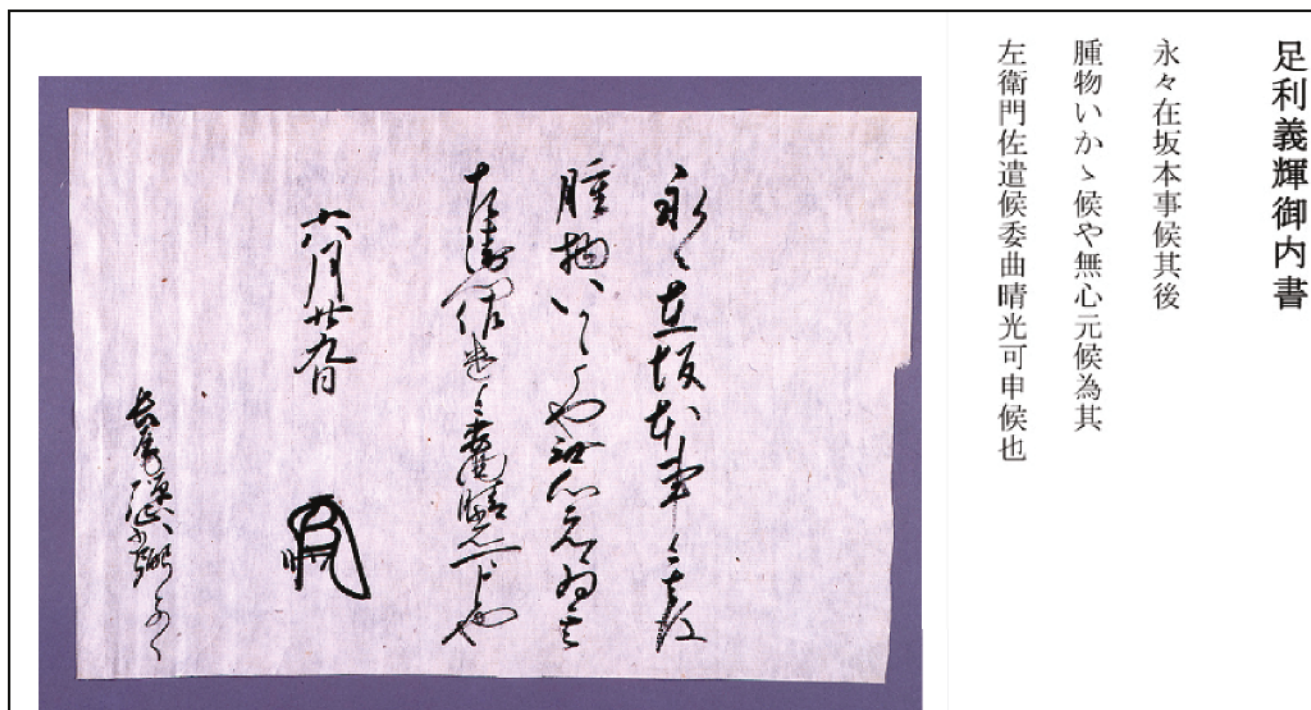 足利義輝御内書
永々在坂本事候其後
腫物いかゝ候や無心元候為其
左衛門佐遣候委曲晴光可申候也
永々在坂本事候其後
腫物いかゝ候や無心元候為其
左衛門佐遣候委曲晴光可申候也
六月廿九日
長尾弾正少弼とのへ